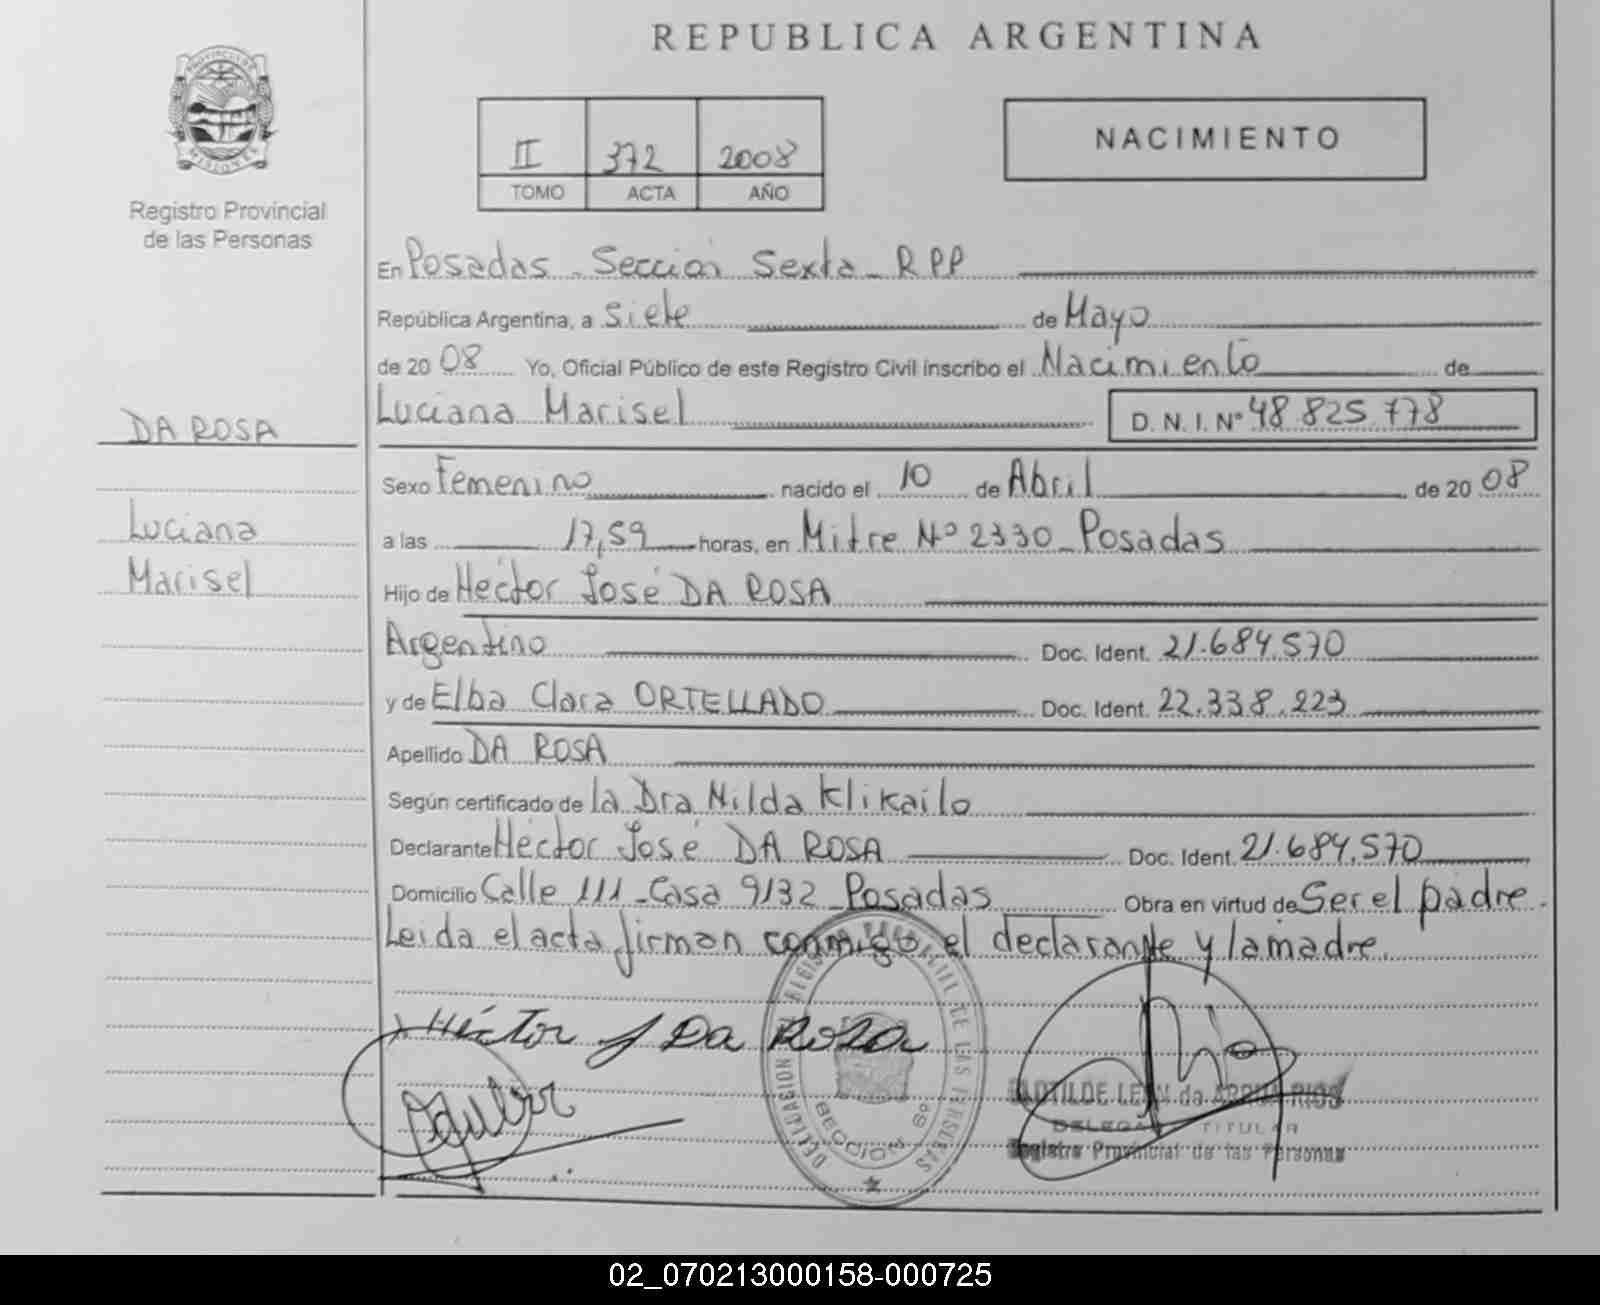 REPUBLICA ARGENTINA
PROVINCIA DE
MISIONES
Registro Provincial
de las Personas
II 372 2008
TOMO ACTA AÑO
NACIMIENTO
En Posadas - Sección Sexta - RPP
República Argentina, a Siete de Mayo
de 2008 Yo, Oficial Público de este Registro Civil inscribo el Nacimiento de
Luciana Marisel D. N. I. Nº 48.825.778
DA ROSA
Luciana
Marisel
Sexo Femenino nacido el 10 de Abril de 2008
a las 17,59 horas, en Mitre Nº 2330 - Posadas
Hijo de Héctor José DA ROSA
Argentino Doc. Ident. 21.684.570
y de Elba Clara ORTELLADO Doc. Ident. 22.338.223
Apellido DA ROSA
Según certificado de la Dra Nilda Klikailo
Declarante Héctor José DA ROSA Doc. Ident. 21.684.570
Domicilio Calle 111 - Casa 9132 - Posadas Obra en virtud de Ser el padre.
Leida el acta firman conmigo el declarante y la madre.
Héctor J Da Rosa
DELEGACION REGISTRO PROVINCIAL DE LAS PERSONAS
SECCION 6º
CLOTILDE LEON da RIOS
DELEGADA TITULAR
Registro Provincial de las Personas
02_070213000158-000725